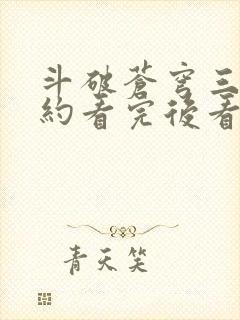 斗破蒼穹三
約看完後看
青天笑